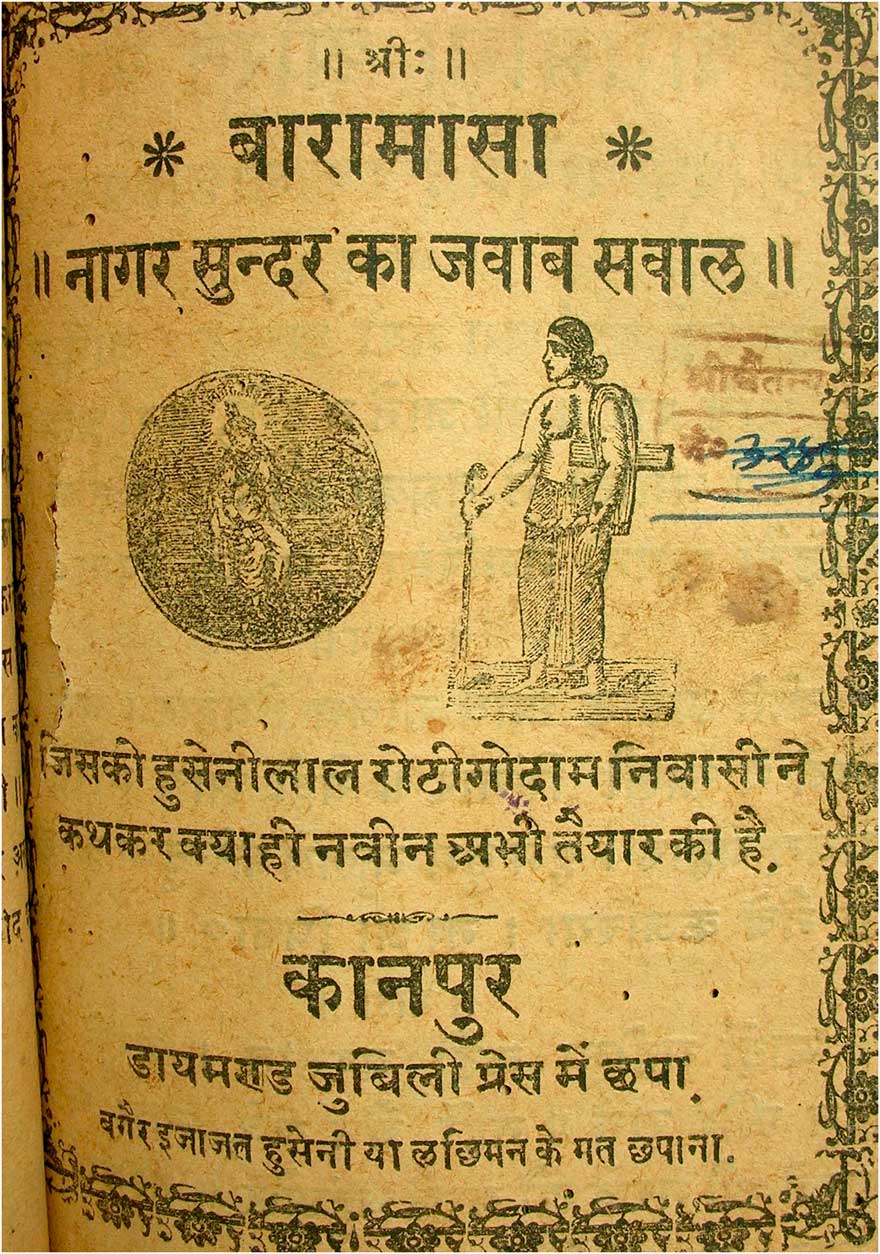 ॥ श्रीः ॥
* बारामासा *
॥ नागर सुन्दर का जवाब सवाल ॥
श्रीचैतन्य
नं०
जिसको हुसेनीलाल रोटीगोदाम निवासी ने
कथकर क्याही नवीन अभी तैयार की है.
कानपुर
डायमण्ड जुबिली प्रेस में छपा.
बगैर इजाजत हुसेनी या लछिमन के मत छपाना.